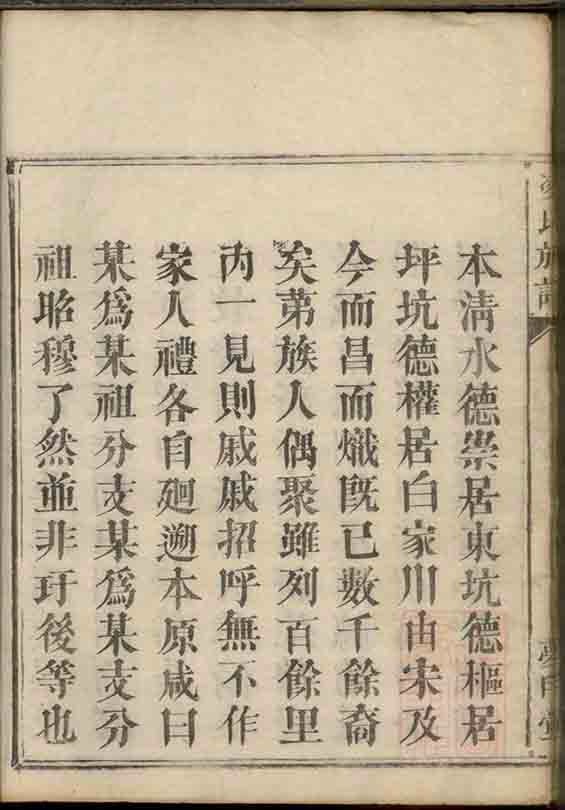 本清水德崇居東坑德樞居
坪坑德權居白家川由宋及
今而昌而熾既已數千餘裔
矣第族人偶聚雖列百餘里
內一見則戚戚招呼無不作
家人禮各自廻遡本原咸曰
某爲某祖分支某爲某支分
祖昭穆了然並非玗後等也